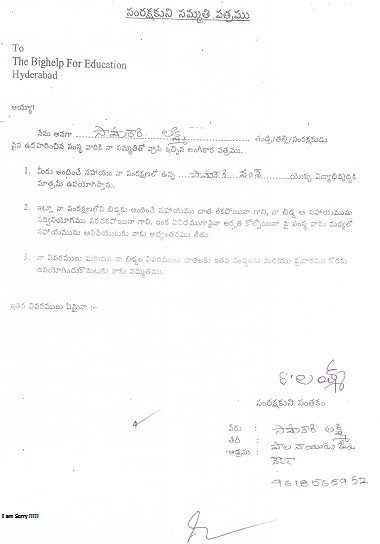 సంరక్షకుని సమ్మతి పత్రము
To
The Bighelp For Education
Hyderabad
అయ్యా!
నేను అనగా లక్ష్మి తండ్రి/తల్లి/సంరక్షకుడు
పైన ఉదహరించిన సంస్థ వారికి నా సమ్మతితో వ్రాసి ఇచ్చిన అంగీకార పత్రము.
1. మీరు అందించే సహాయం నా సంరక్షణలో ఉన్న యొక్క విద్యాభివృద్ధికి
మాత్రమే ఉపయోగిస్తాను.
2. ఇట్లా నా సంరక్షణలోని బిడ్డకు అందించే సహాయము దాత లేకపోయినా గాని, నా బిడ్డ ఆ సహాయమును
సద్వినియోగము పరచకపోయినా గాని, ఇంక ఏవిధముగానైనా అర్హత కోల్పోయినా పై సంస్థ వారు మధ్యలో
సహాయమును ఆపివేయుటకు నాకు అభ్యంతరము లేదు.
3. నా వివరములు మరియు నా బిడ్డల వివరములు దాతలకు ఇతర సంస్థలకు మరియు ప్రచారము కొరకు
ఉపయోగించుకొనుటకు నాకు సమ్మతము.
ఇతర వివరములు ఏమైనా :-
సంరక్షకుని సంతకం
పేరు : లక్ష్మి
తేదీ :
అడ్రసు :
9618565952
I am Sorry !!!!!